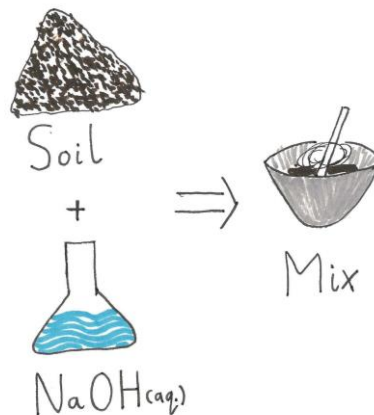 Soil
+
Mix
NaOH(aq.)